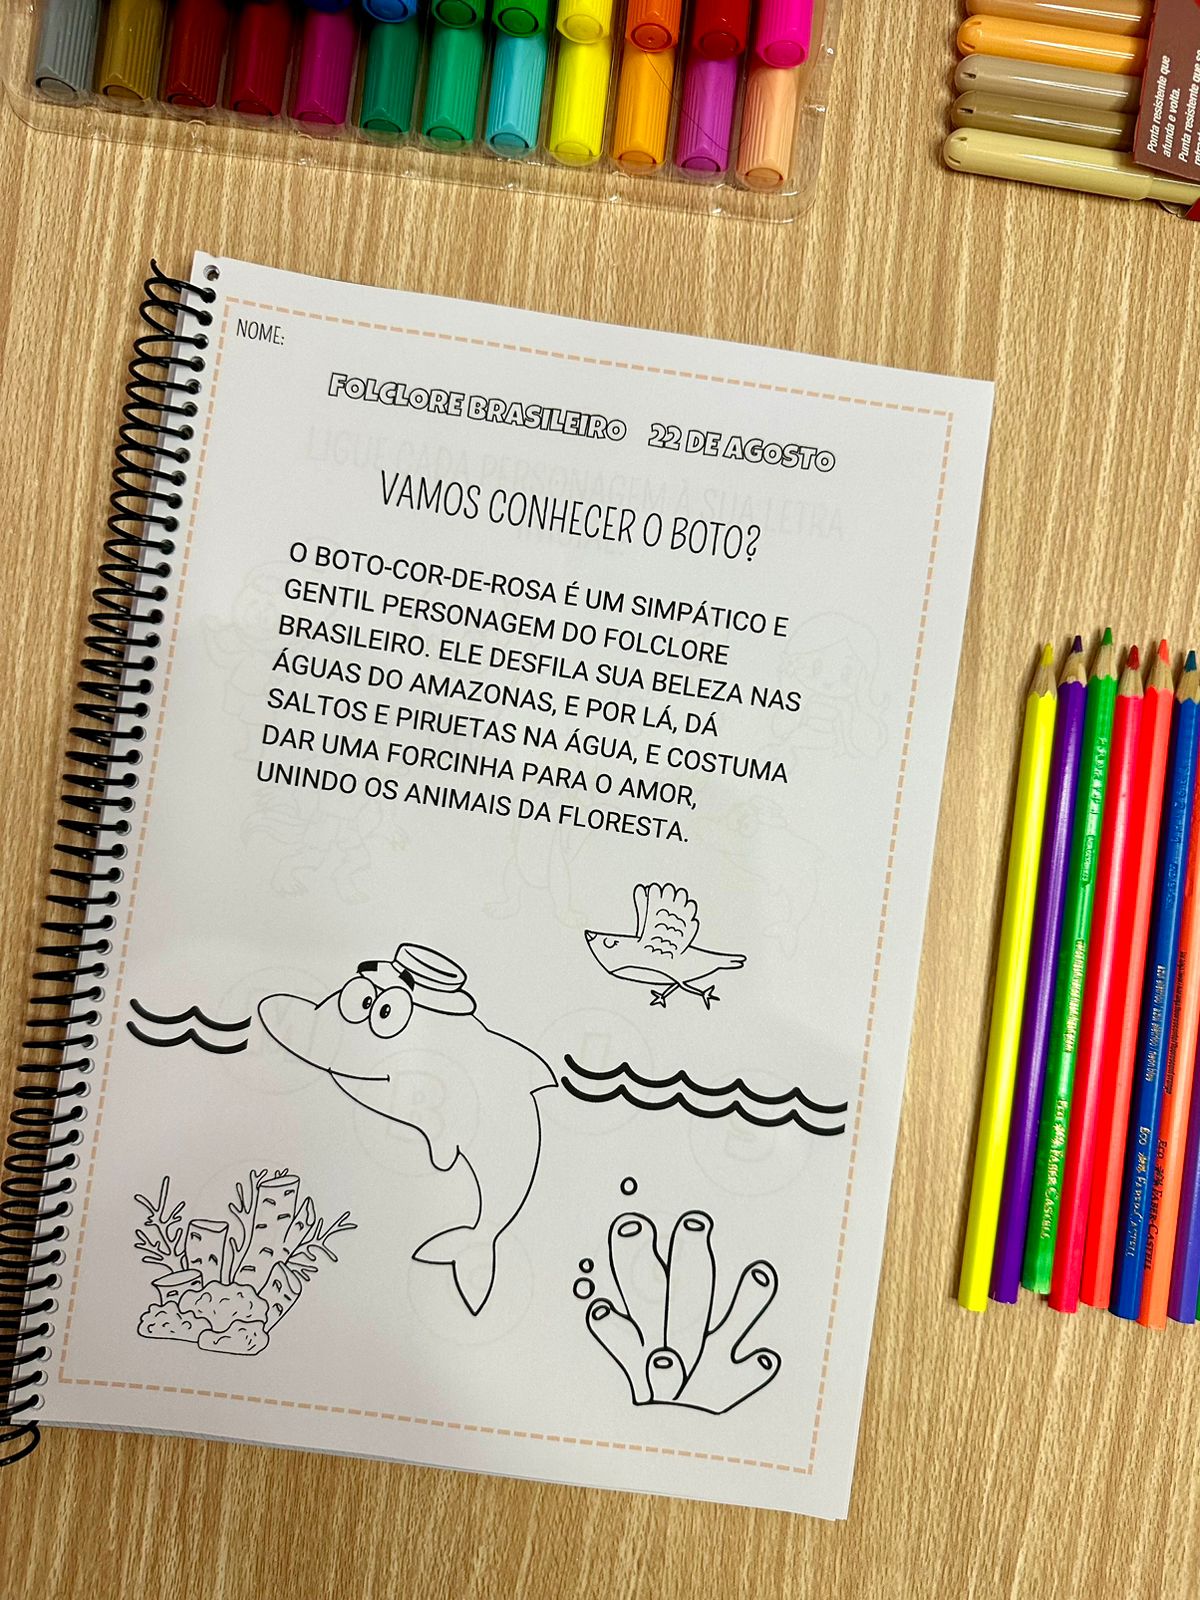 Ponta resistente que
afunda e volta.
Punta resistente que se
NOME:
FOLCLORE BRASILEIRO 22 DE AGOSTO
VAMOS CONHECER O BOTO?
O BOTO-COR-DE-ROSA É UM SIMPÁTICO E
GENTIL PERSONAGEM DO FOLCLORE
BRASILEIRO. ELE DESFILA SUA BELEZA NAS
ÁGUAS DO AMAZONAS, E POR LÁ, DÁ
SALTOS E PIRUETAS NA ÁGUA, E COSTUMA
DAR UMA FORCINHA PARA O AMOR,
UNINDO OS ANIMAIS DA FLORESTA.